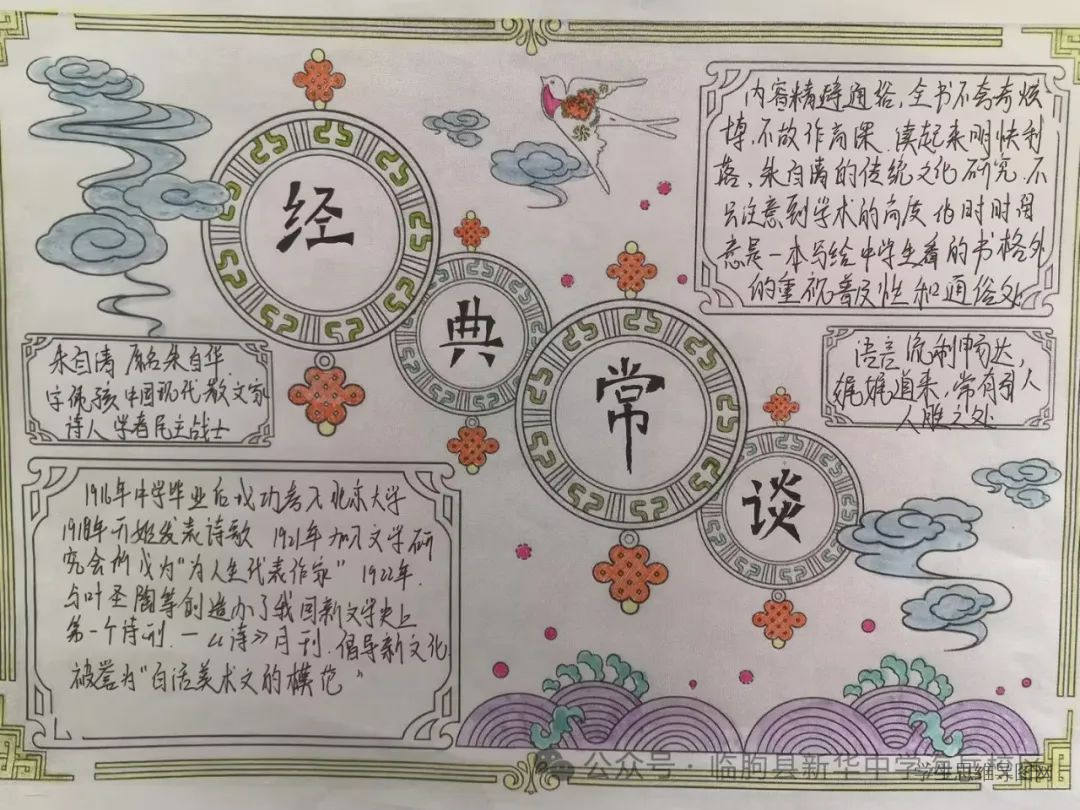 经
典
常
谈
朱自清 原名朱自华
字佩弦 中国现代散文家
诗人 学者民主战士
1916年中学毕业后成功考入北京大学
1918年开始发表诗歌 1921年加入文学研
究会 成为“为人生代表作家” 1922年.
与叶圣陶等创造办了我国新文学史上
第一个诗刊.—《诗》月刊.倡导新文化.
被誉为“白话美术文的模范”
内容精辟通俗,全书不夸夸烦
博.不故作高深.读起来明快利
落、朱自清的传统文化研究.不
只注意到学术的高度 但时时留
意是一本写给中学生看的书格外
的重视普及性和通俗处
语言流利畅达,
娓娓道来,常有引人
人胜之处
公众号·临朐县新华中学
学生思维导图网